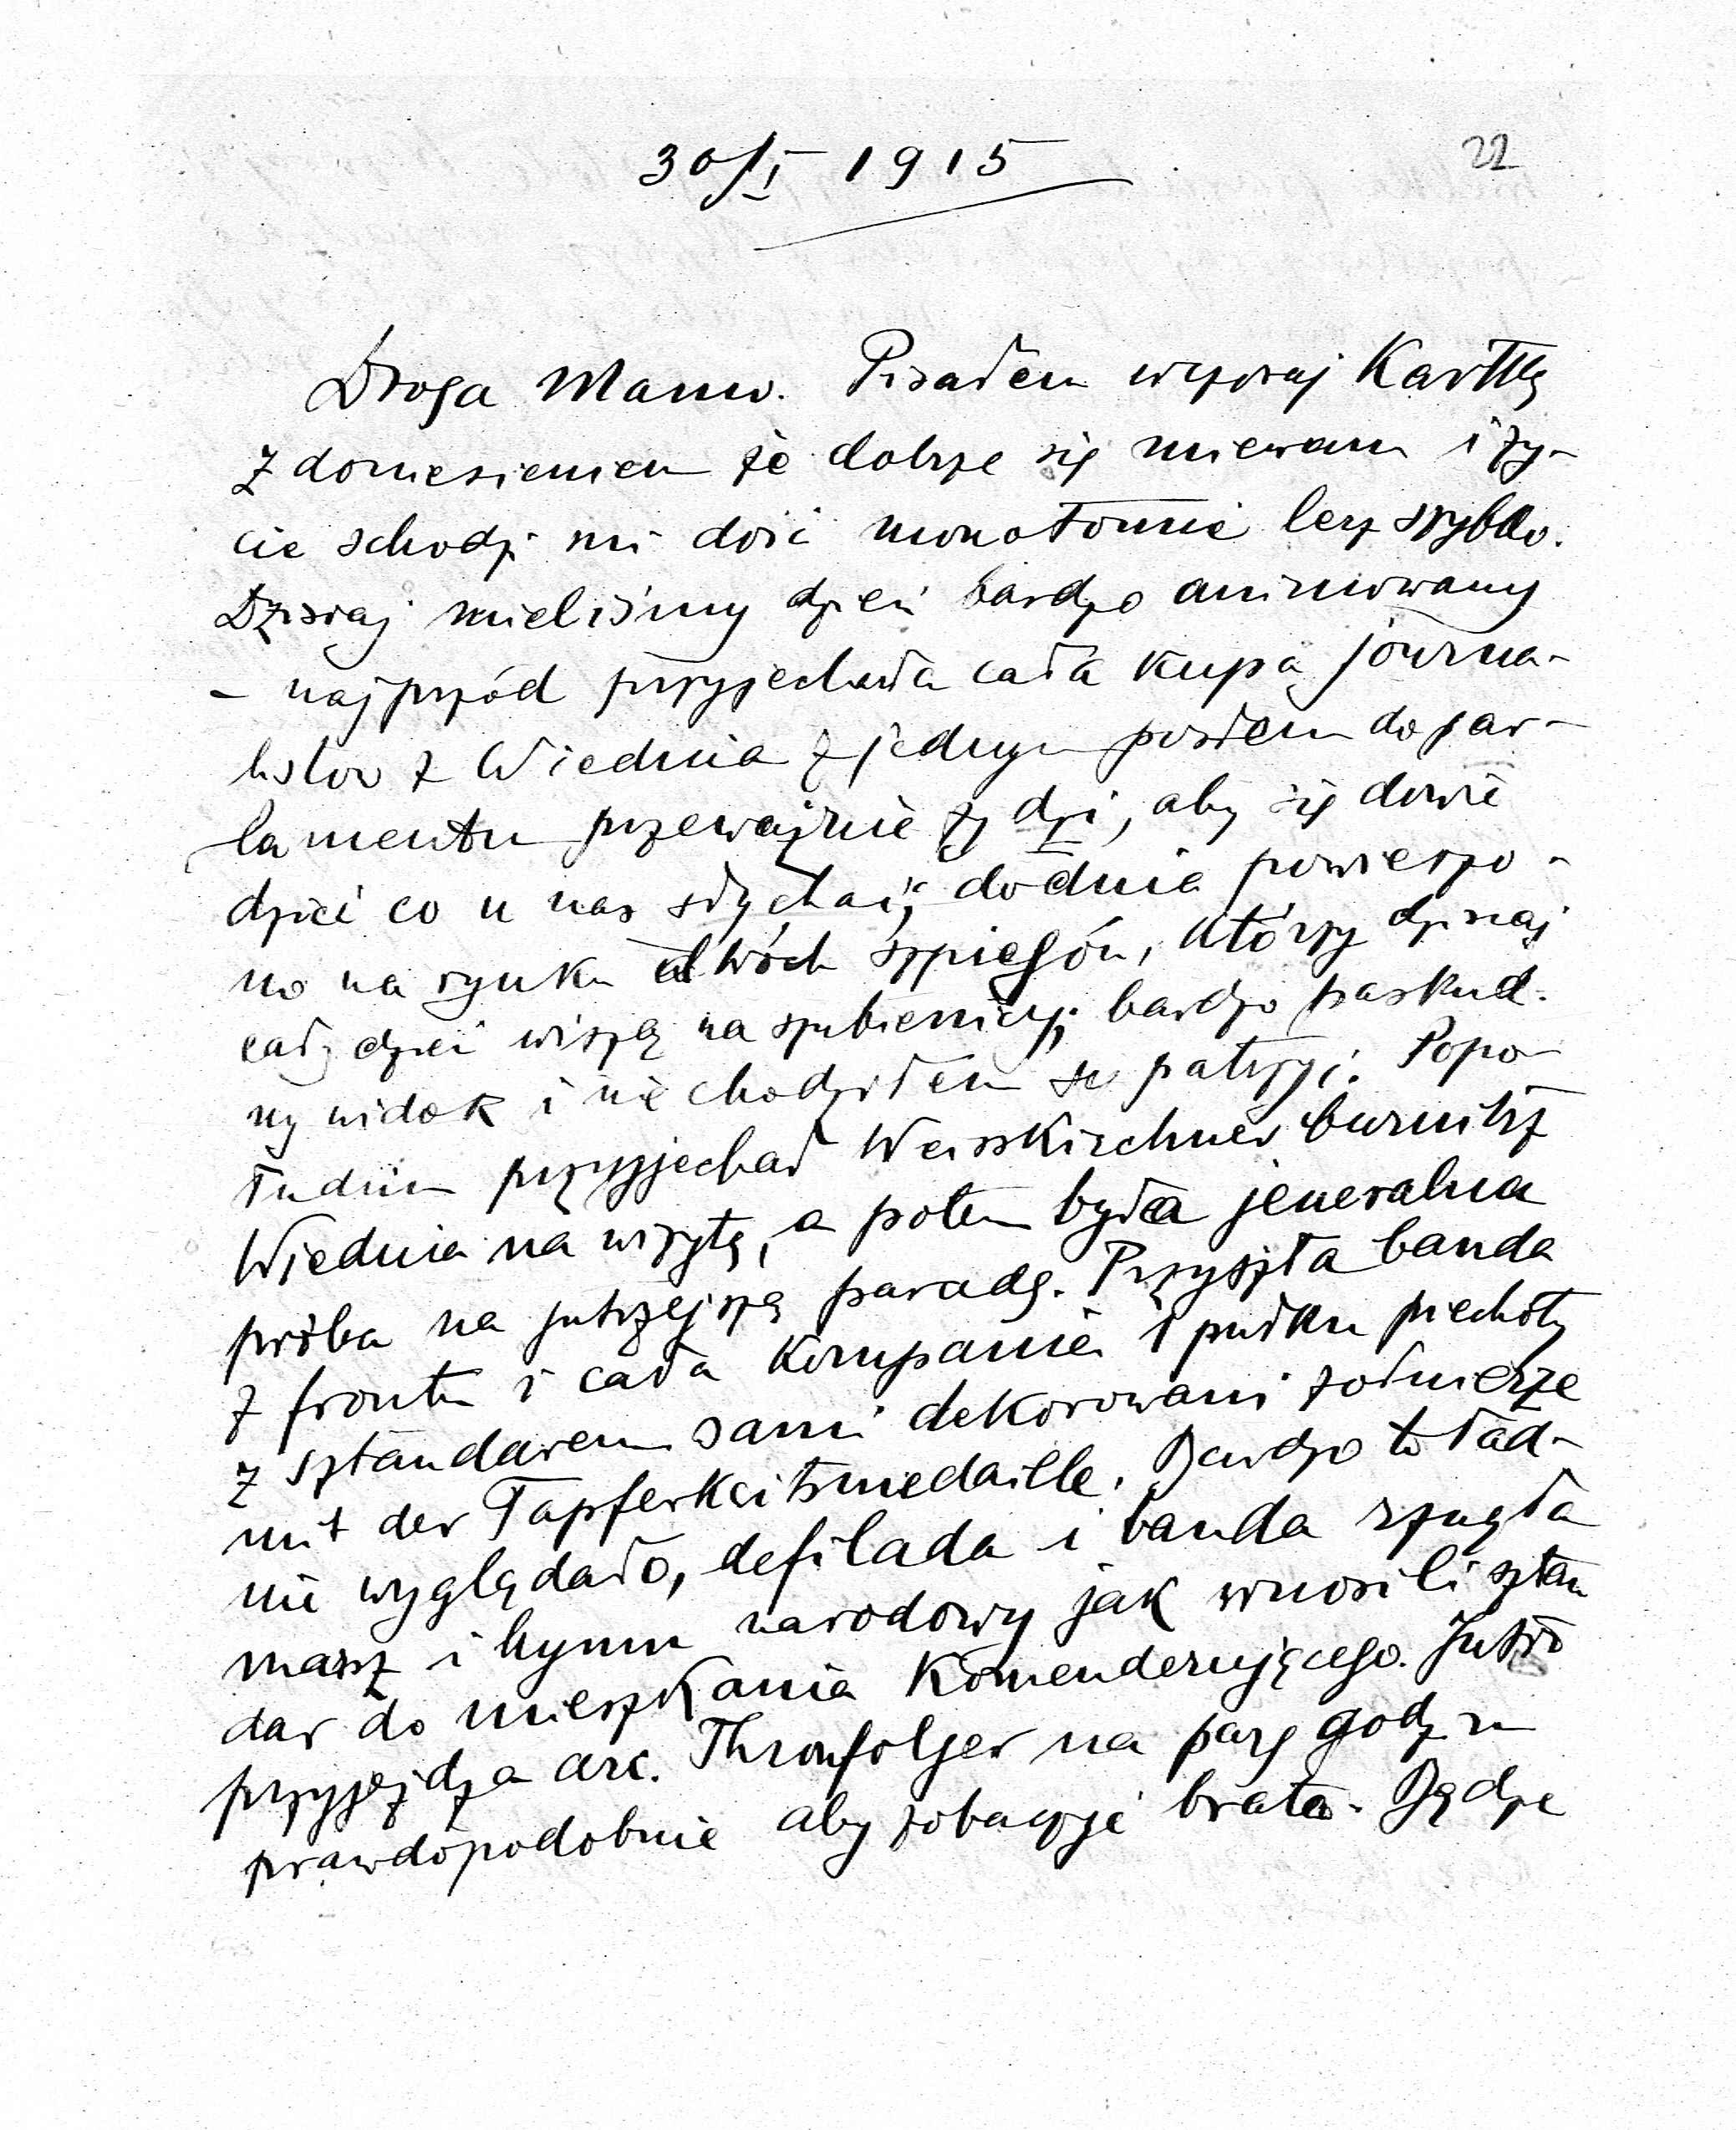 30/I 1915
22
Droga Mamo. Pisałem wczoraj Kartkę
z doniesieniem że dobrze się miewam i ży-
cie schodzi mi dość monotonnie lecz szybko.
Dzisiaj mieliśmy dzień bardzo animowany
– najprzód przyjechała cała kupa journa-
listów z Wiednia z jednym posłem do par-
lamentu przeważnie żydzi, aby się dowie
dzieć co u nas słychać, dodnia powieszo-
no na rynku dwóch szpiegów, którzy dzisiaj
cały dzień wiszą na szubienicy; bardzo paskud-
ny widok i nie chodziłem się patrzyć. Popo-
łudniu przyjechał Weisskirchner burmistrz
Wiednia na wizytę, a potem była jeneralna
próba na jutrzejszą paradę. Przyszła banda
z frontu i cała Kompania 1 pułku piechoty
z sztandarem sami dekorowani żołnierze
mit der Tapferkeitsmedaille. Bardzo to ład-
nie wyglądało, defilada i banda rznęła
marsz i hymn narodowy jak wnosili sztan
dar do mieszkania Komenderującego. Jutro
przyjeżdża arc. Thronfolger na parę godzin
prawdopodobnie aby zobaczyć brata. Będzie